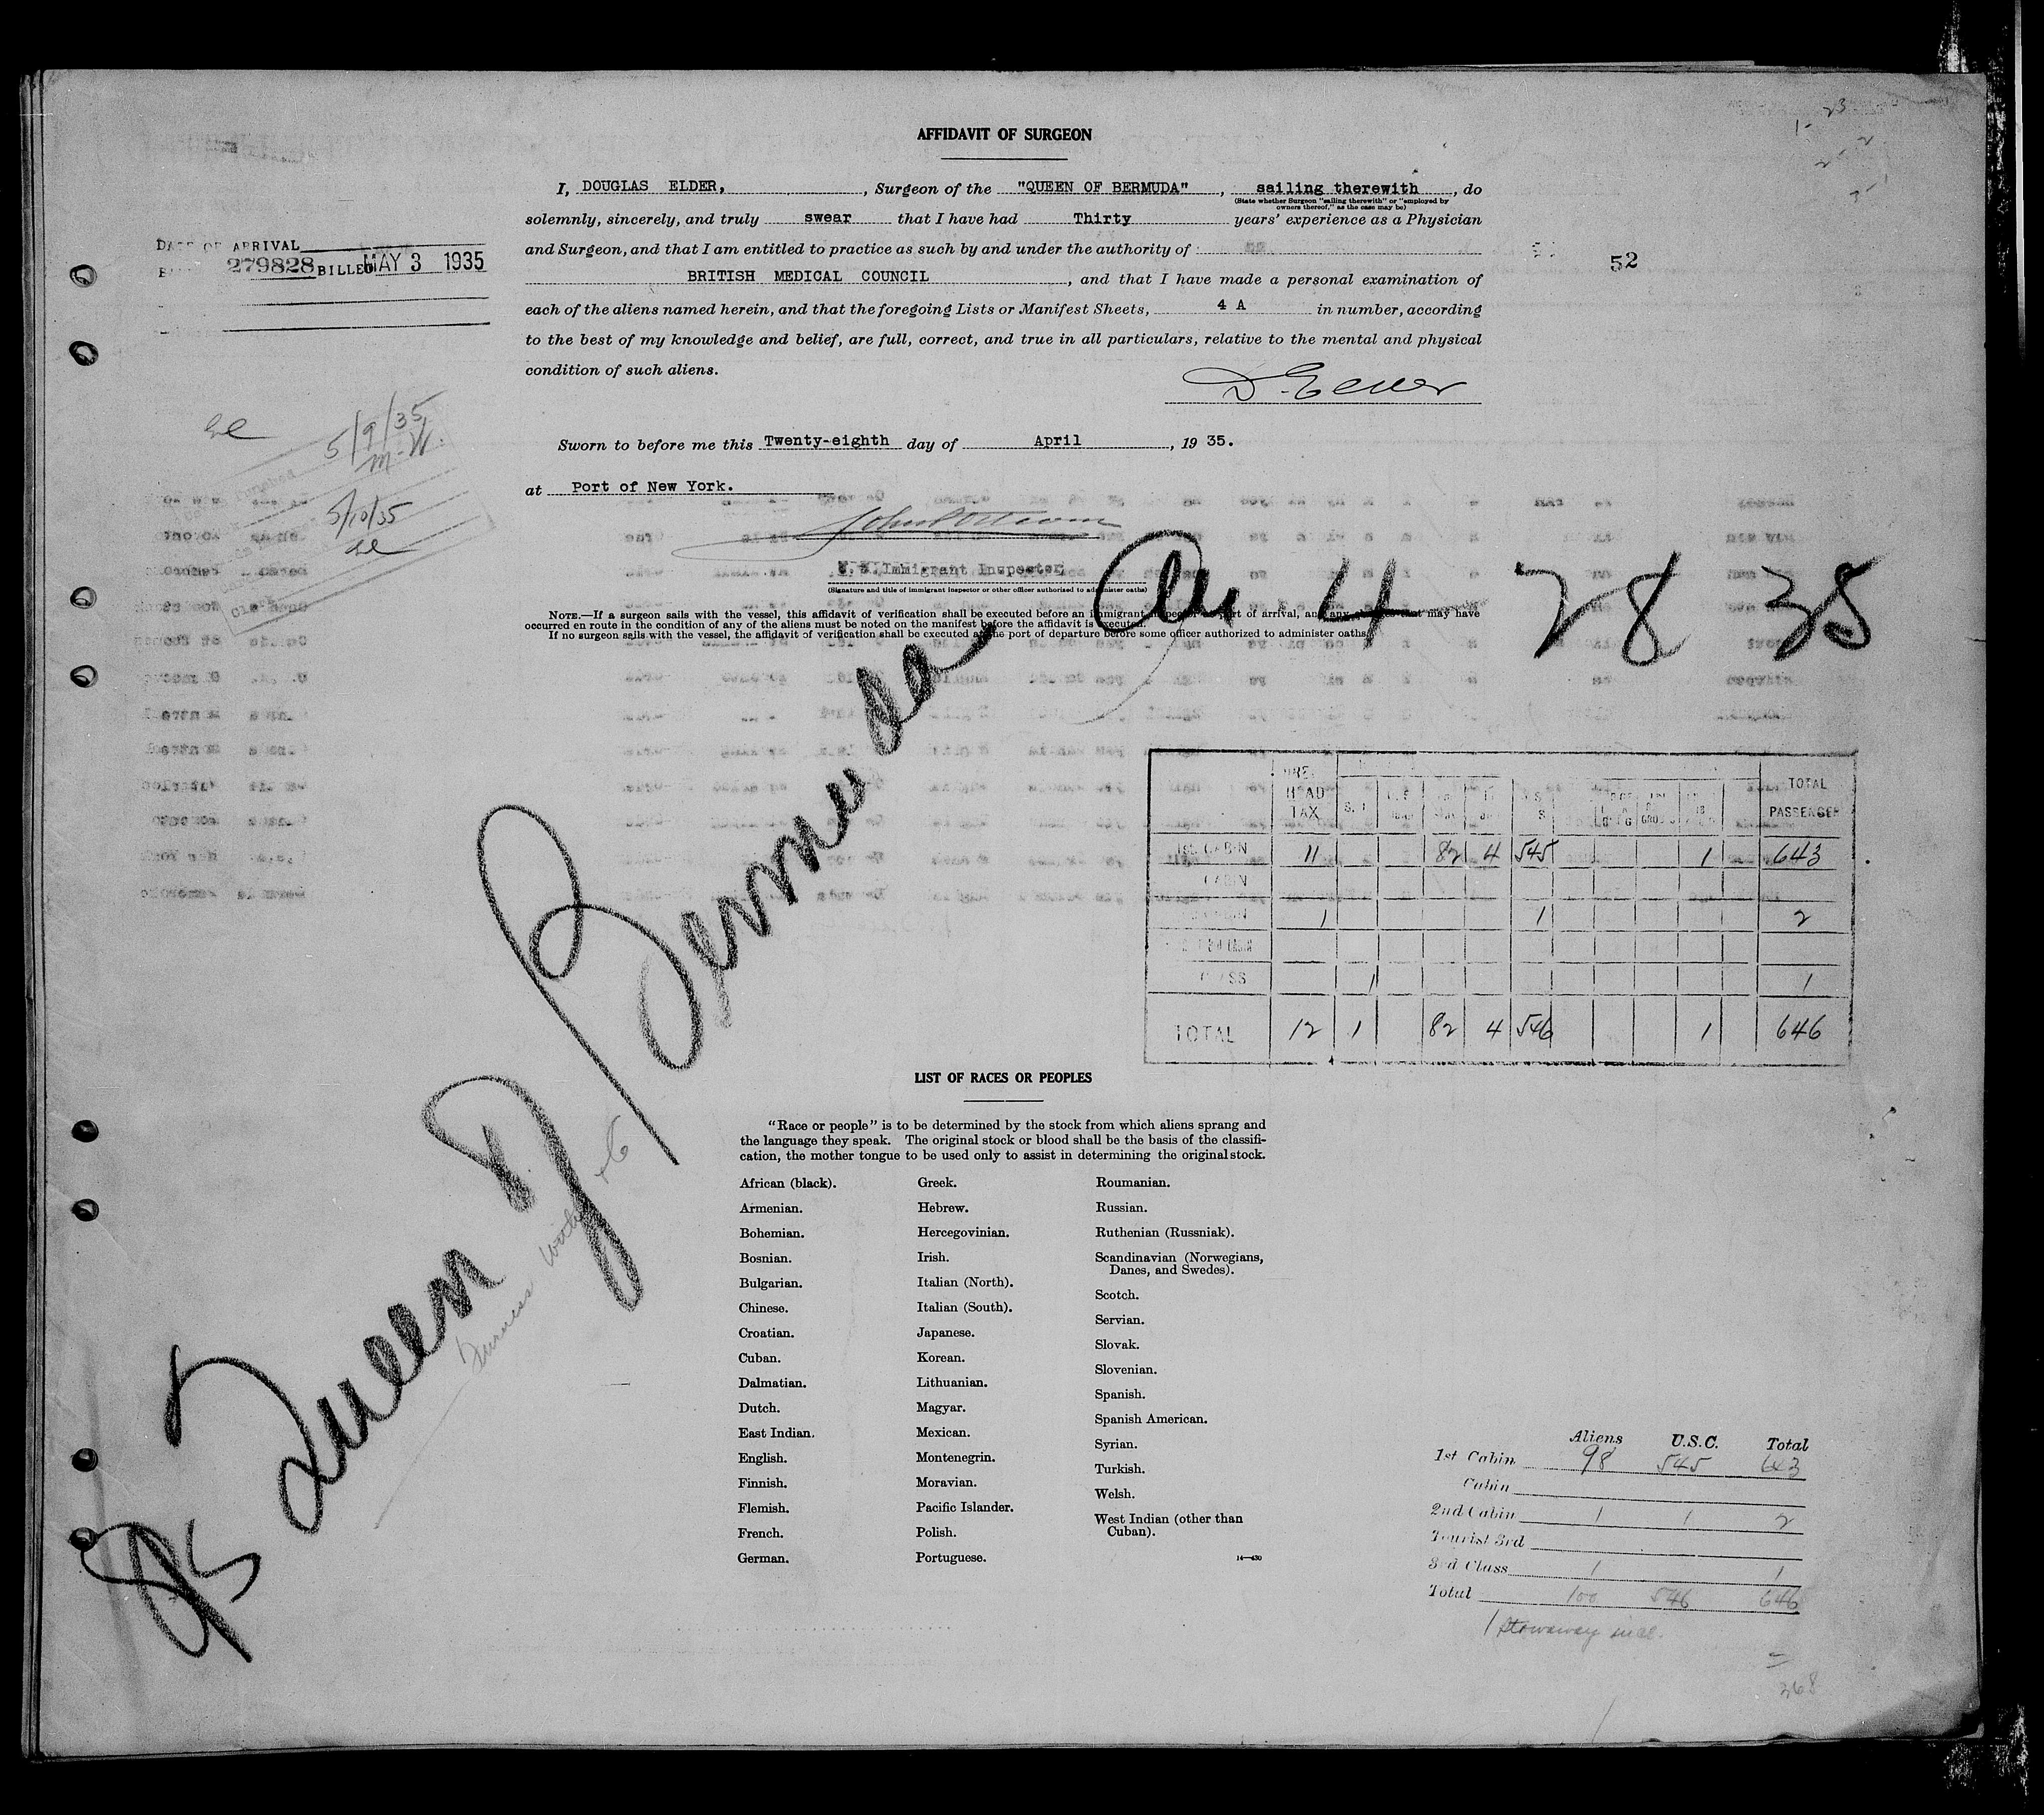 AFFIDAVIT OF SURGEON
I, DOUGLAS ELDER, , Surgeon of the "QUEEN OF BERMUDA" , sailing therewith , do
(State whether Surgeon "sailing therewith" or "employed by
owners thereof," as the case may be)
solemnly, sincerely, and truly swear that I have had Thirty years' experience as a Physician
and Surgeon, and that I am entitled to practice as such by and under the authority of
BRITISH MEDICAL COUNCIL , and that I have made a personal examination of
each of the aliens named herein, and that the foregoing Lists or Manifest Sheets, 4 A in number, according
to the best of my knowledge and belief, are full, correct, and true in all particulars, relative to the mental and physical
condition of such aliens.
D. Elder
Sworn to before me this Twenty-eighth day of April , 19 35.
at Port of New York.
U. S. Immigrant Inspector
(Signature and title of immigrant inspector or other officer authorized to administer oaths)
NOTE.—If a surgeon sails with the vessel, this affidavit of verification shall be executed before an immigrant inspector at port of arrival, and any may have
occurred en route in the condition of any of the aliens must be noted on the manifest before the affidavit is executed.
If no surgeon sails with the vessel, the affidavit of verification shall be executed at the port of departure before some officer authorized to administer oaths.
DATE OF ARRIVAL
279828 BILLED MAY 3 1935
52
5/9/35
M-W.
5/10/35
Arr 4 28 35
SS Queen of Bermuda
Furness
HEAD TAX
TOTAL PASSENGER
1st CABIN 11 82 4 545 1 643
CABIN
CABIN 1 1 2
CLASS 1 1
TOTAL 12 1 82 4 546 1 646
LIST OF RACES OR PEOPLES
"Race or people" is to be determined by the stock from which aliens sprang and
the language they speak. The original stock or blood shall be the basis of the classifi-
cation, the mother tongue to be used only to assist in determining the original stock.
African (black).
Armenian.
Bohemian.
Bosnian.
Bulgarian.
Chinese.
Croatian.
Cuban.
Dalmatian.
Dutch.
East Indian.
English.
Finnish.
Flemish.
French.
German.
Greek.
Hebrew.
Hercegovinian.
Irish.
Italian (North).
Italian (South).
Japanese.
Korean.
Lithuanian.
Magyar.
Mexican.
Montenegrin.
Moravian.
Pacific Islander.
Polish.
Portuguese.
Roumanian.
Russian.
Ruthenian (Russniak).
Scandinavian (Norwegians,
Danes, and Swedes).
Scotch.
Servian.
Slovak.
Slovenian.
Spanish.
Spanish American.
Syrian.
Turkish.
Welsh.
West Indian (other than
Cuban).
14—430
Aliens U.S.C. Total
1st Cabin 98 545 643
Cabin
2nd Cabin 1 1 2
Tourist 3rd
3rd Class 1 1
Total 100 546 646
1 Stowaway incl.
368